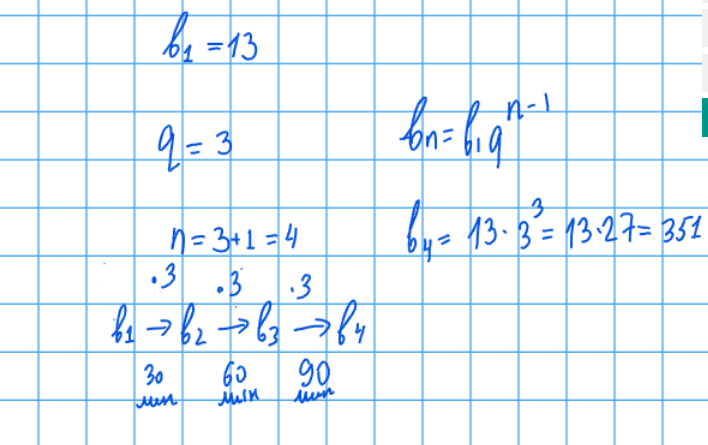 b₁ = 13
q = 3
bn = b₁qⁿ⁻¹
n = 3+1 = 4
b₄ = 13·3³ = 13·27 = 351
·3 ·3 ·3
b₁ → b₂ → b₃ → b₄
30 60 90
мин мин мин